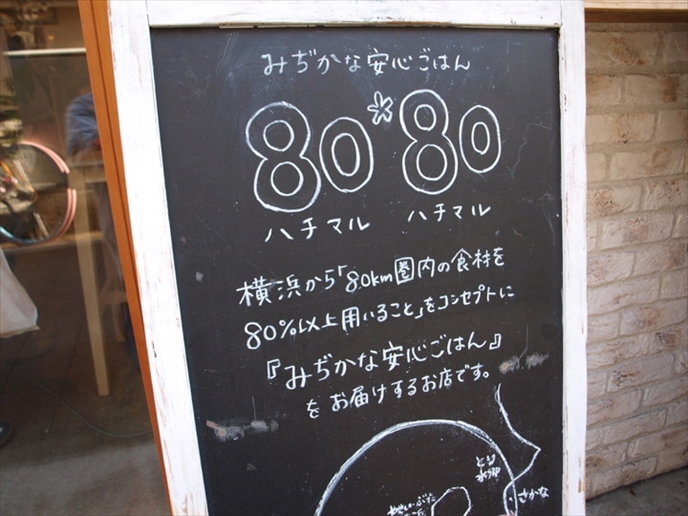 みぢかな安心ごはん
80*80
ハチマル ハチマル
横浜から「80km圏内の食材を
80%以上用いること」をコンセプトに
『みぢかな安心ごはん』
をお届けするお店です。
とり
さかな